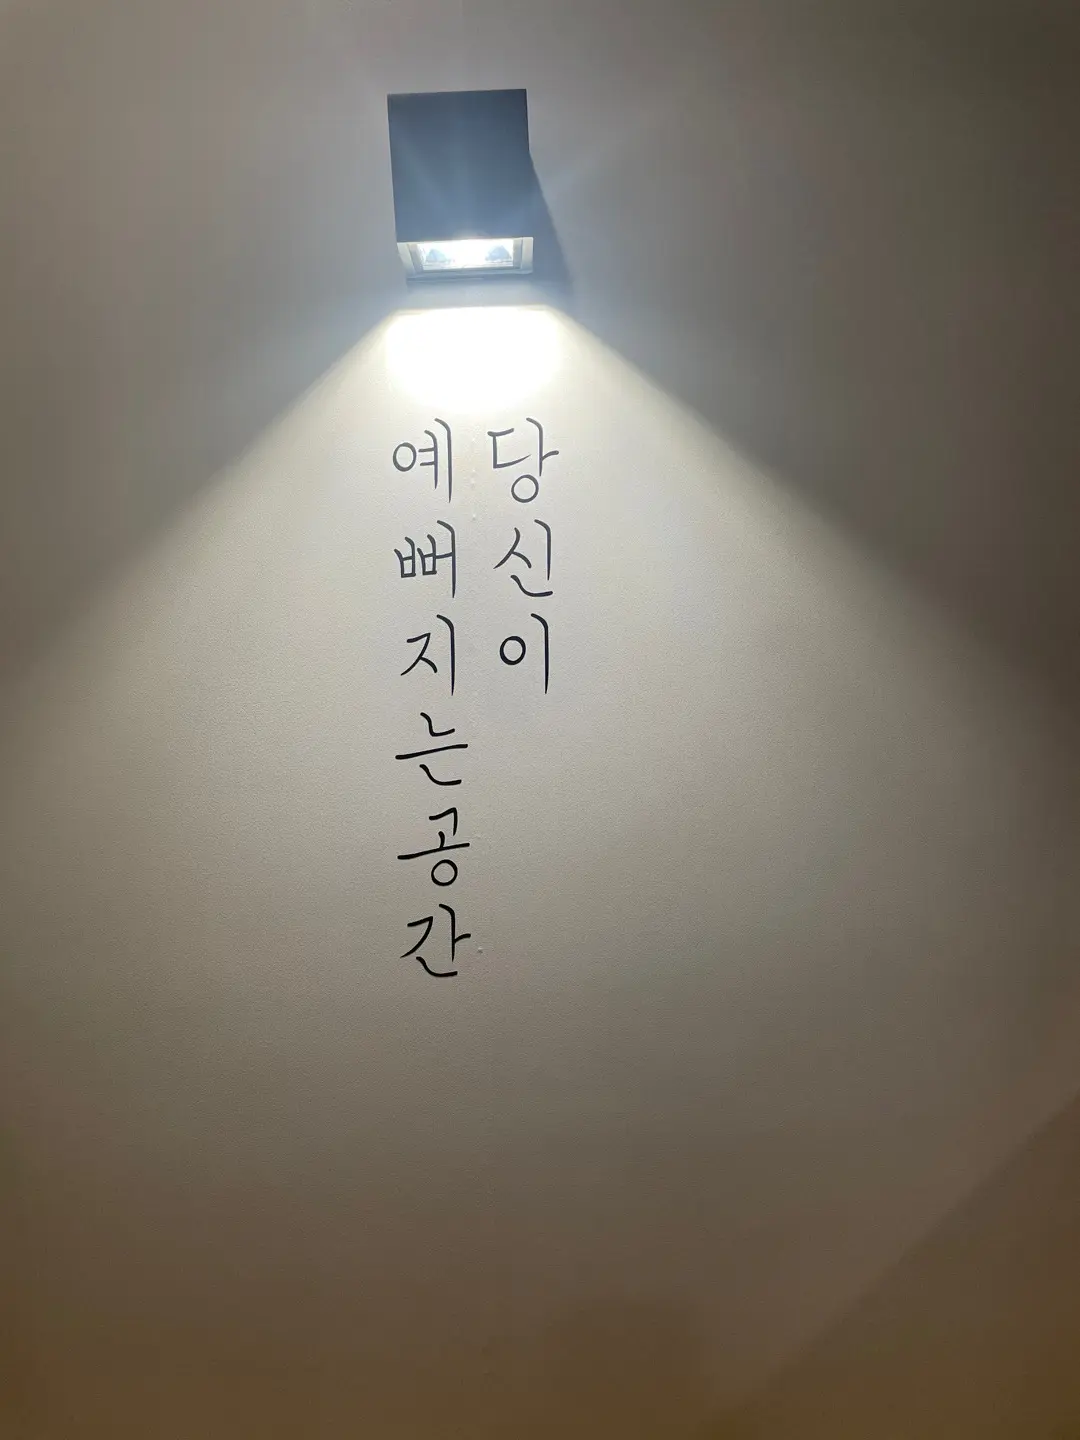 당신이
예뻐지는공간